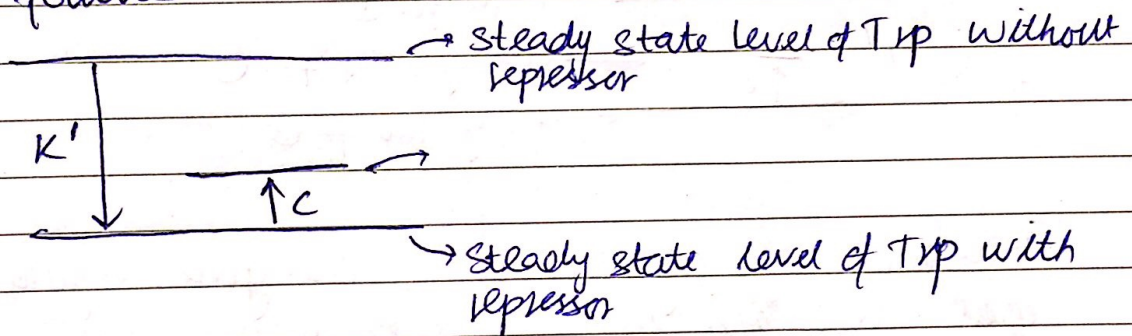 → steady state level of Trp without
repressor
K'
↑ C
→ steady state level of Trp with
repressor